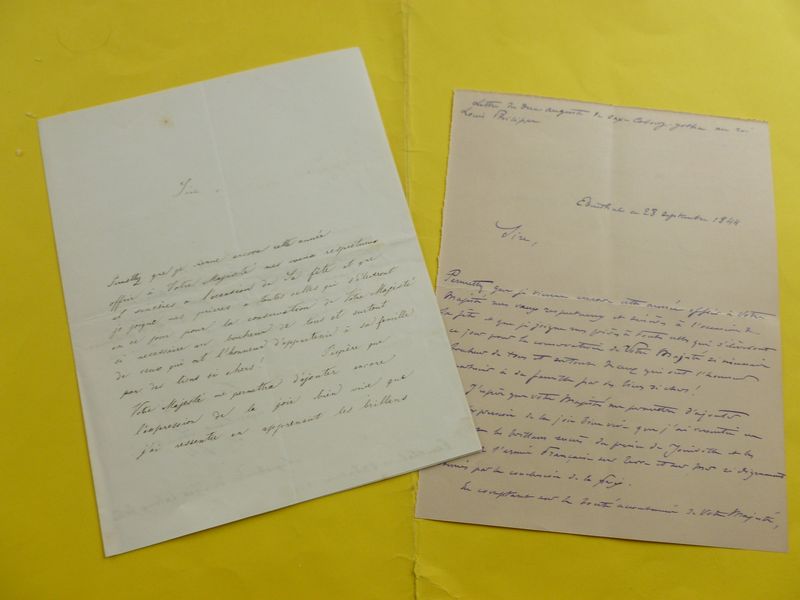 Sire,
Permettez que je vienne encore cette année
offrir à Votre Majesté mes voeux respectueux
et sincères à l'occasion de Sa fête et que
je joigne mes prières à toutes celles qui s'élèvent
en ce jour pour la conservation de Votre Majesté
si nécessaire au bonheur de tous et surtout
de ceux qui ont l'honneur d'appartenir à sa famille
par des liens si chers! J'espère que
Votre Majesté me permettra d'ajouter encore
l'expression de la joie bien vive que
j'ai ressentie en apprenant les brillans
Lettre du Duc auguste de Saxe Cobourg-gotha au roi
Louis Philippe
le 28 septembre 1844
Sire,
Permettez que je vienne encore cette année offrir à Votre
Majesté mes vœux respectueux et sincères à l'occasion de
Sa fête et que je joigne mes prières à toutes celles qui s'élèvent
ce jour pour la conservation de Votre Majesté si nécessaire
bonheur de tous et surtout de ceux qui ont l'honneur
à sa famille par des liens si chers!
J'espère que votre Majesté me permettra d'ajouter
de la joie bien vive que j'ai ressentie en
les brillans succès du prince de Joinville et
l'armée Française sur terre et sur mer si dignement
par la conclusion de la paix.
En comptant sur la bonté accoutumée de Votre Majesté,